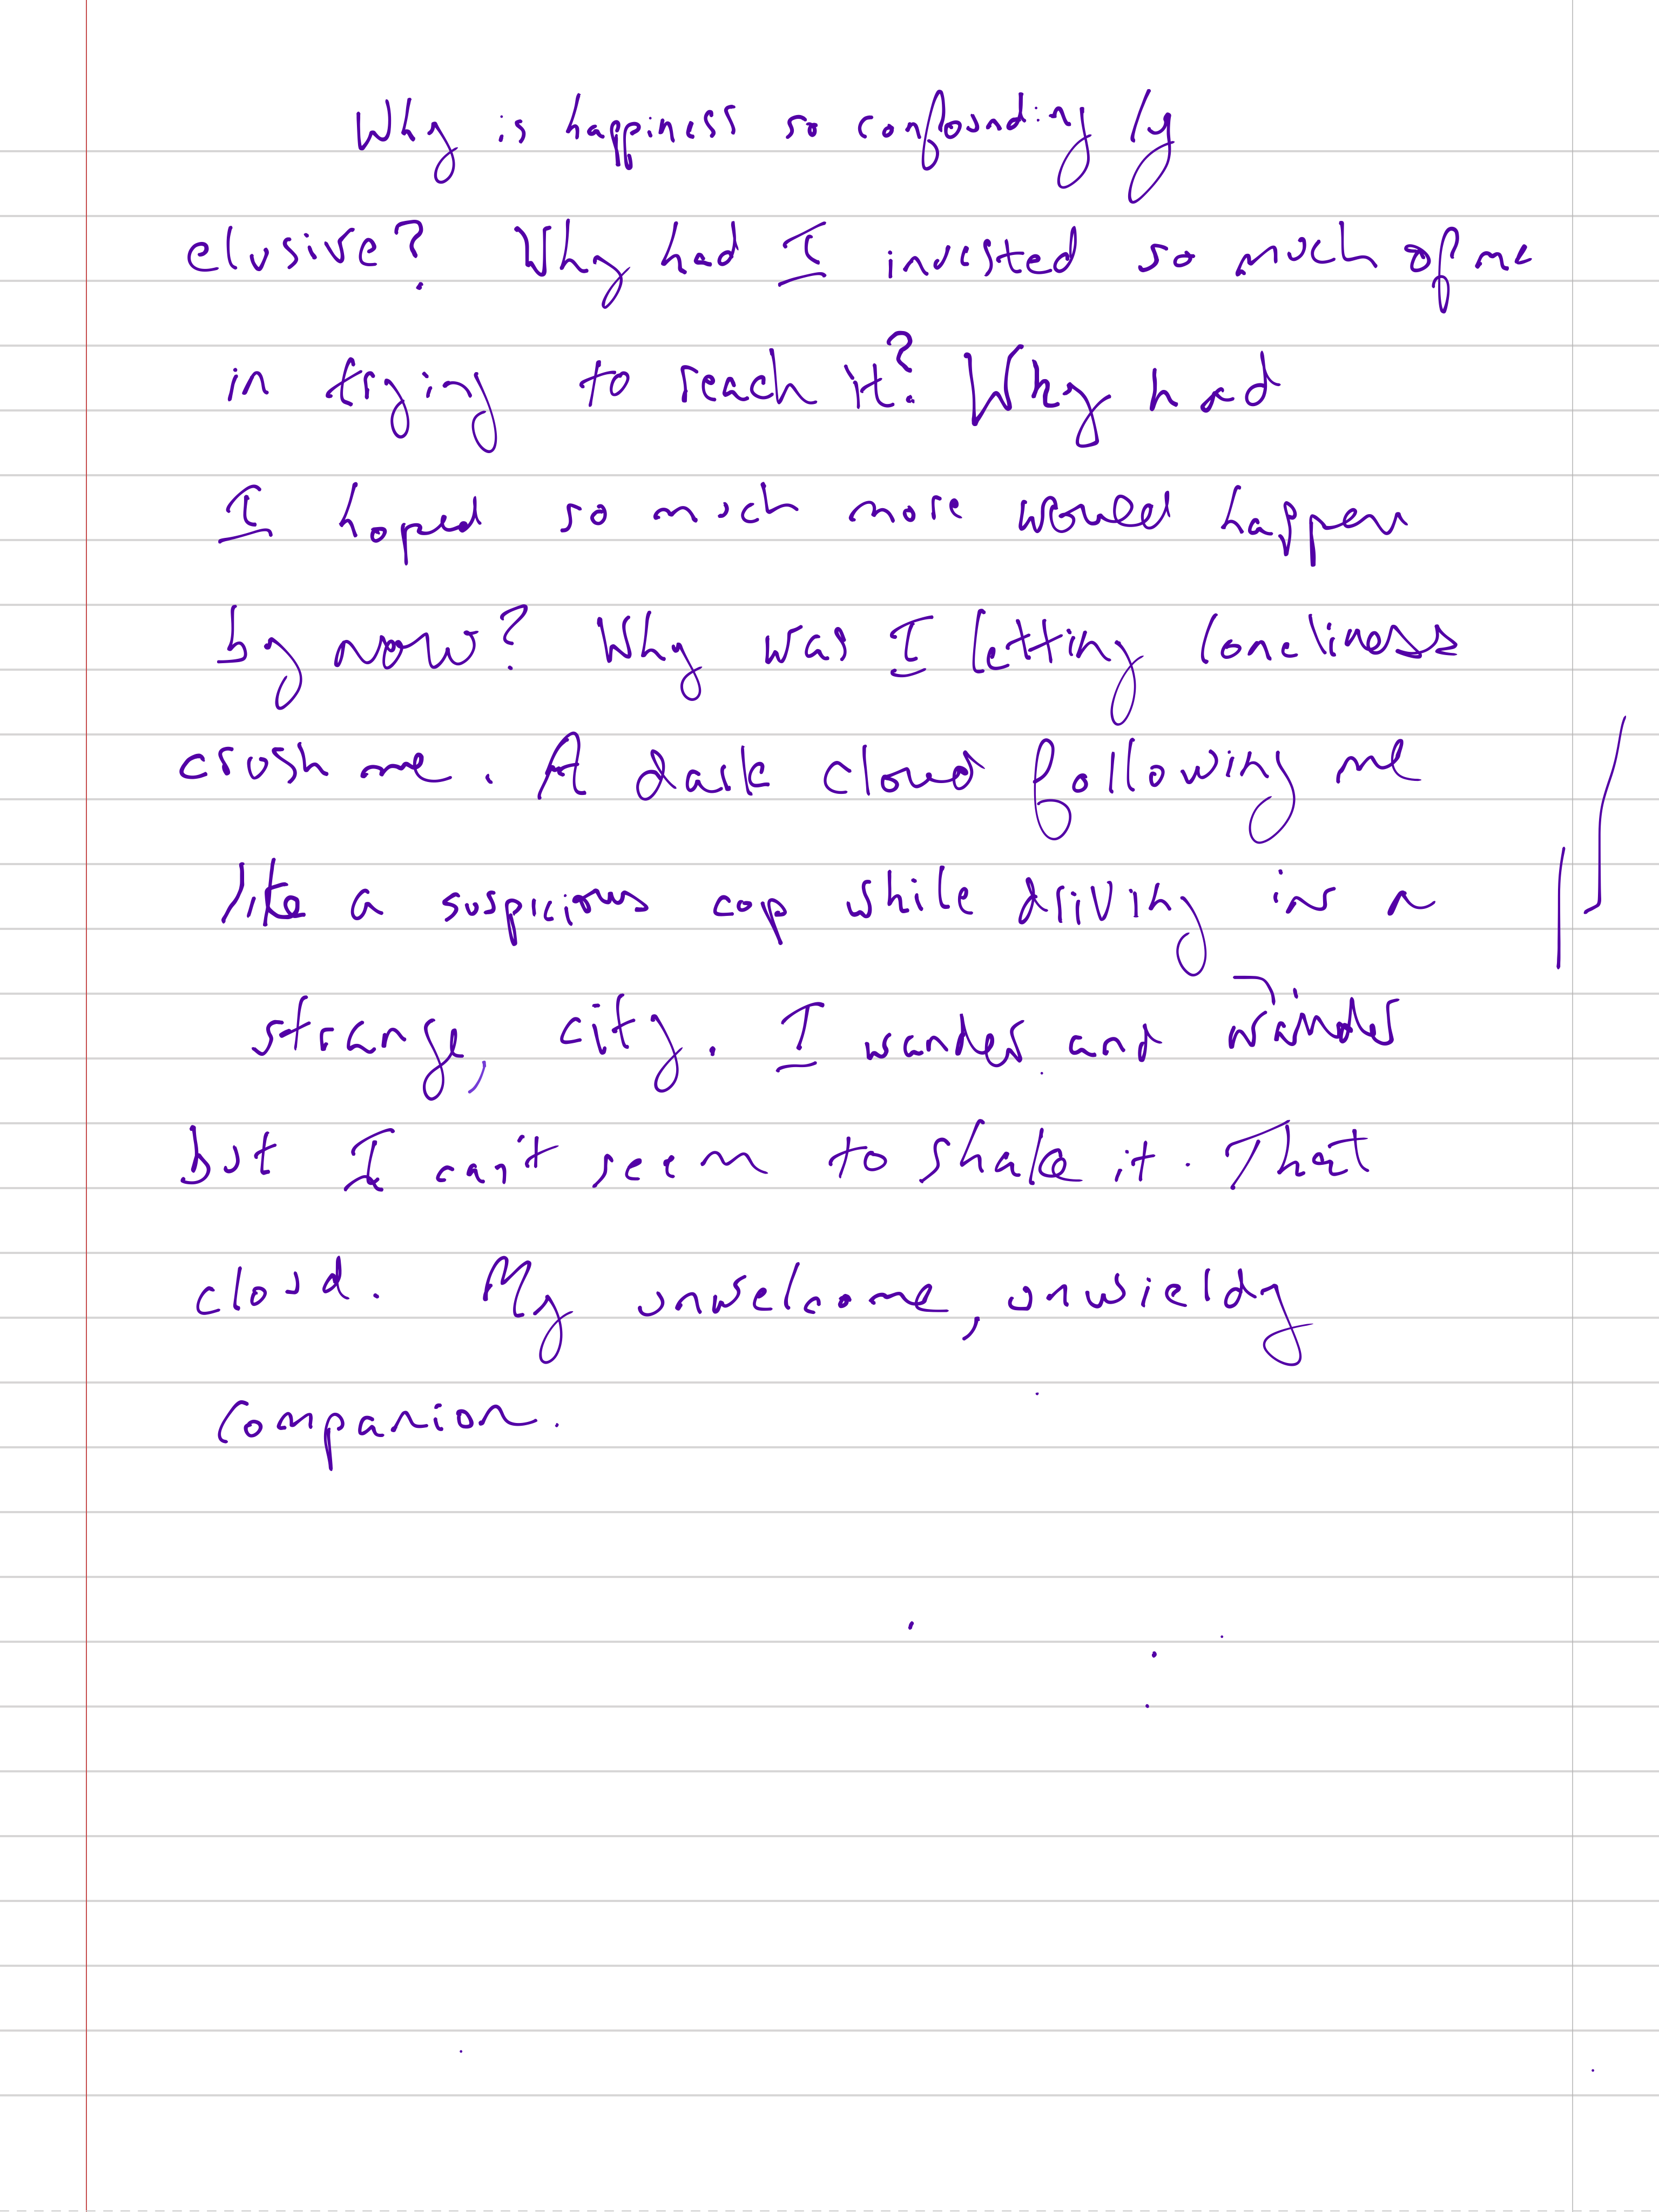 Why is happiness so confoundingly
elusive? Why had I invested so much of me
in trying to reach it? Why had
I hoped so much more would happen
by now? Why was I letting loneliness
crush me. A dark cloud following me
like a suspicious cop while driving in a
strange, city. I wander and
but I can't seem to shake it. That
cloud. My unwelcome, unwieldy
companion.